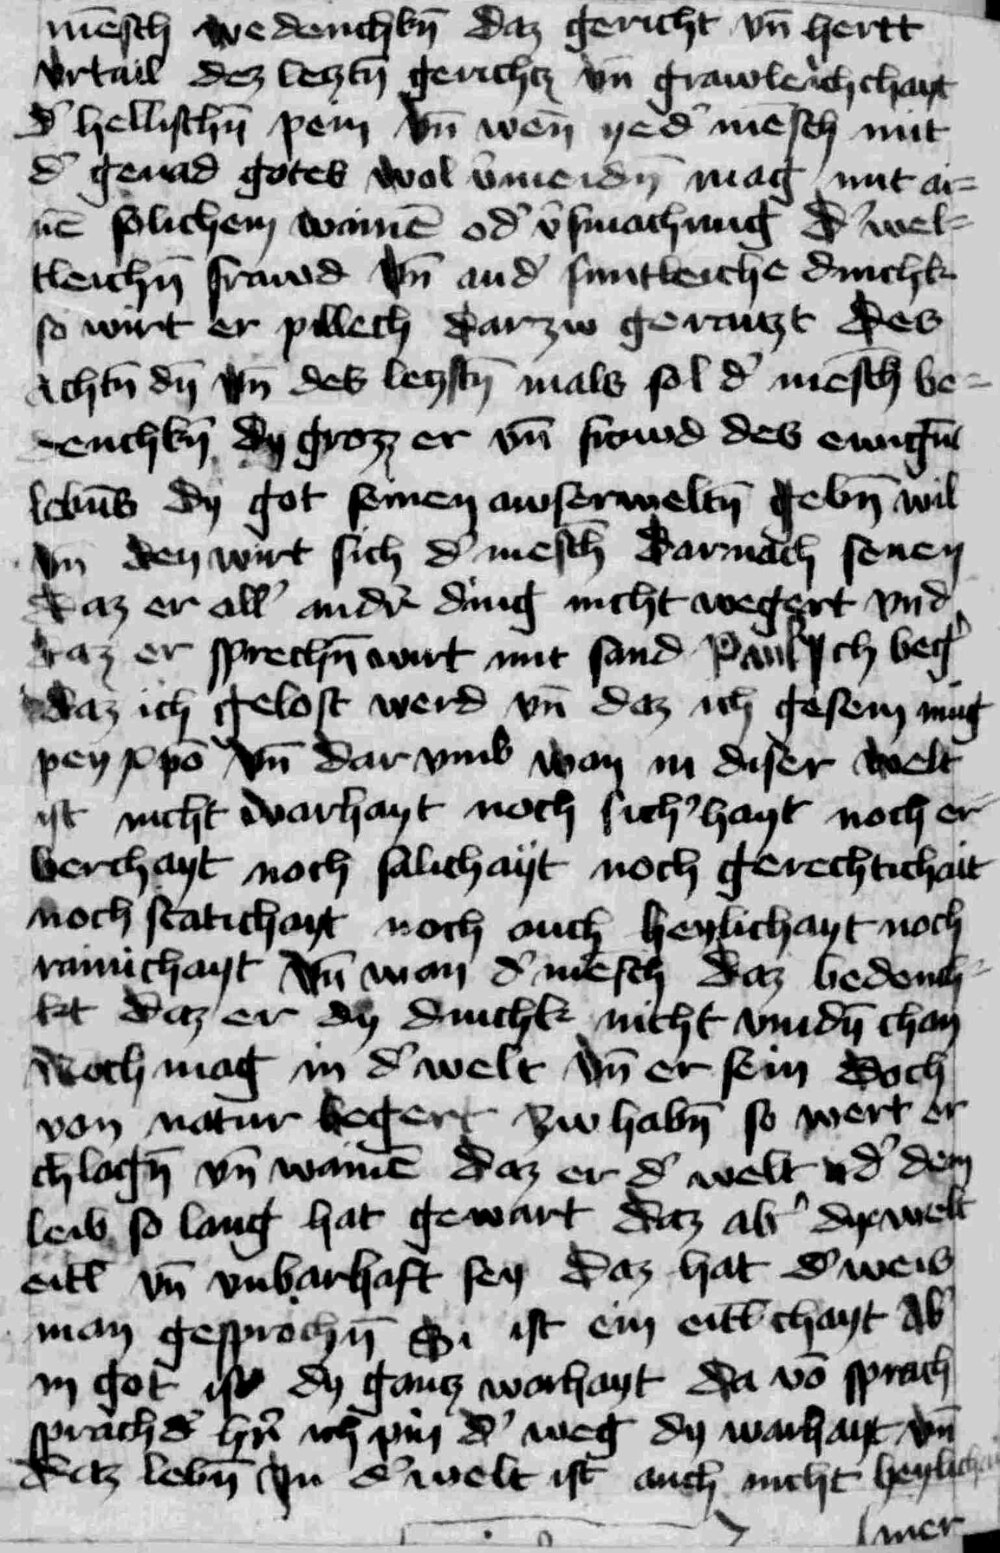 mēsch wedenchkn̄ daz gericht vn̄ hertt
vrtail dez leczt̄n gerichcz vn̄ grawleichchayt
d' hellischn̄ pein vn̄ wen̄ yed' mēsch mit
d' genad gotes wol v̄meidn̄ mag mit ai=
nē solichem wainē od' v̄smachung d' wel=
tleichn̄ frawd vn̄ and' suntleiche dinchk
so wirt er pillech darzw geraiczt Des
achtn̄ dn̄ vn̄ des leczstn̄ mals sol d' mēsch be=
denchkn̄ dy grozz er vn̄ frowd des ewign̄
lebn̄s dy got seinen awserweltn̄ gebn̄ wil
vn̄ den wirt sich d' mēsch darnach senen
daz er all' andr̄ ding nicht wegert vnd
daz er sprechn̄ wirt mit sand Paul Ich beg'
daz ich gelost werd vn̄ daz ich gesein mug
pey xpō vn̄ dar vmb wan in diser welt
ist nicht warhayt noch sich'hayt noch er
berchayt noch salichayt noch gerechtichait
noch statichayt noch auch heylichayt noch
rainichayt vn̄ wan d' mēsch daz bedench=
kt daz er dy dinchk nicht vindn̄ chan
noch mag in d' welt vn̄ er sein doch
von natur begert zw habn̄ so wert er
chlagn̄ vn̄ wainē daz er d' welt vd' dem
leib so lang hat gewart daz ab' dye welt
eitl vn̄ vnbarhaft sey daz hat d' weis
man gesprochn̄ Si ist ein eitlchayt Ab'
in got ist dy gancz warhayt da vō sprach
sprach d' hr̄ ich pin d' weg dy warhayt vn̄
daz lebn̄ In d' welt ist auch nicht heylichait